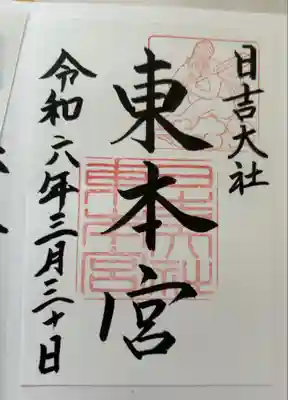 日吉大社
東本宮
令和六年三月三十日